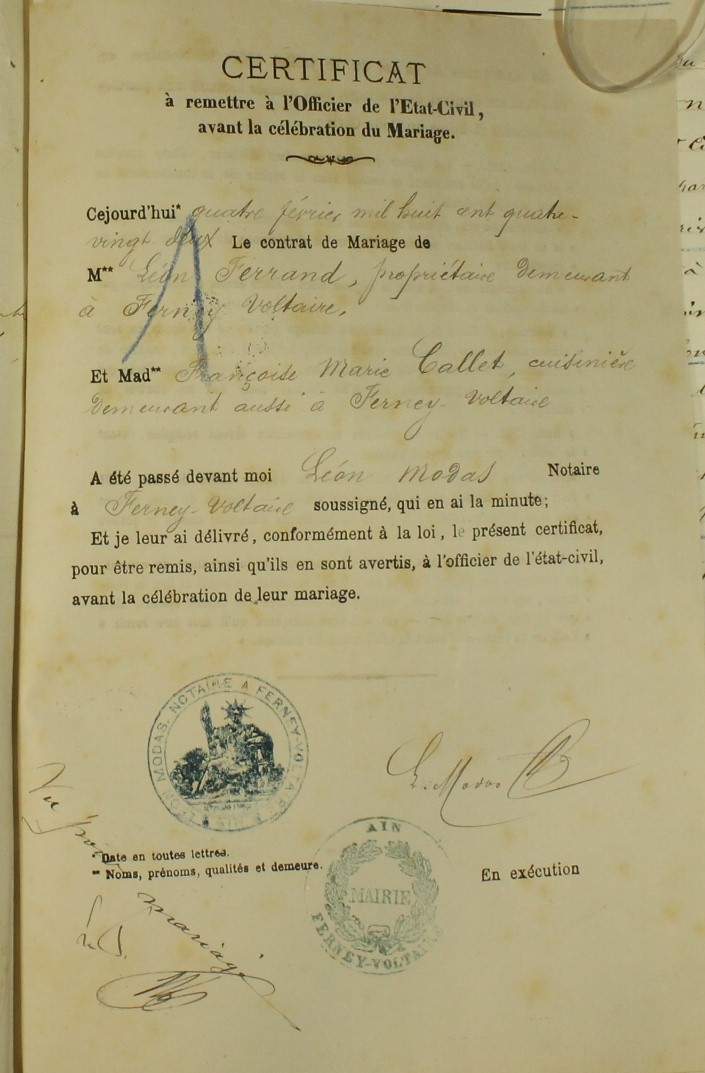 CERTIFICAT
à remettre à l'Officier de l'Etat-Civil,
avant la célébration du Mariage.
Cejourd'hui* quatre février mil huit cent quatre-
vingt deux Le contrat de Mariage de
M** Léon Ferrand, propriétaire demeurant
à Ferney Voltaire,
Et Mad** Françoise Marie Callet, cuisinière
demeurant aussi à Ferney-Voltaire
A été passé devant moi Léon Modas Notaire
à Ferney-Voltaire soussigné, qui en ai la minute;
Et je leur ai délivré, conformément à la loi, le présent certificat,
pour être remis, ainsi qu'ils en sont avertis, à l'officier de l'état-civil,
avant la célébration de leur mariage.
LÉON MODAS, NOTAIRE A FERNEY-VOLTAIRE
AIN
L. Modas
Vu pour
mariage
* Date en toutes lettres.
** Noms, prénoms, qualités et demeure.
AIN
MAIRIE
FERNEY-VOLTAIRE
En exécution